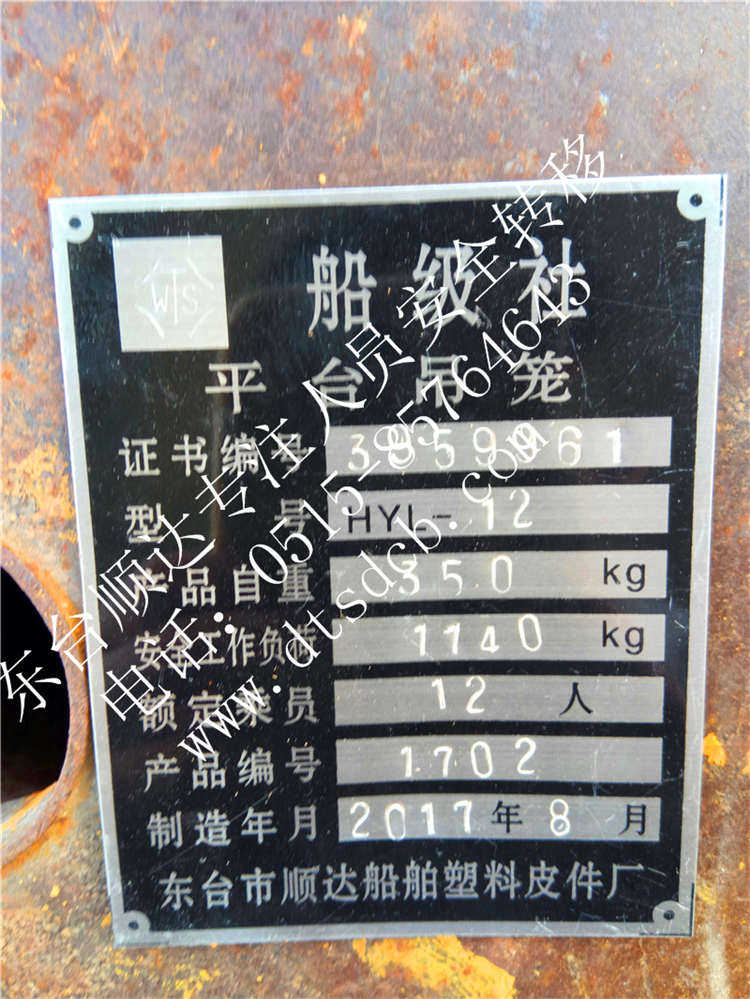 WTS
船级社
平台吊笼
证书编号 3859961
型号 HYL-12
产品自重 350 kg
安全工作负荷 1140 kg
额定乘员 12 人
产品编号 1702
制造年月 2017年8月
东台市顺达船舶塑料皮件厂
东台顺达专注人员安全转移
电话:0515-85764643
www.dtsdcb.com